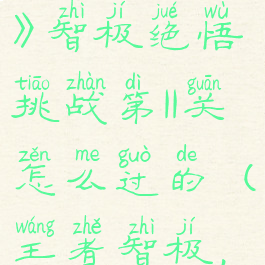 zhì jí jué wù
》智极绝悟
tiāo zhàn dì guān
挑战第11关
zěn me guò de
怎么过的（
wáng zhě zhì jí
王者智极，